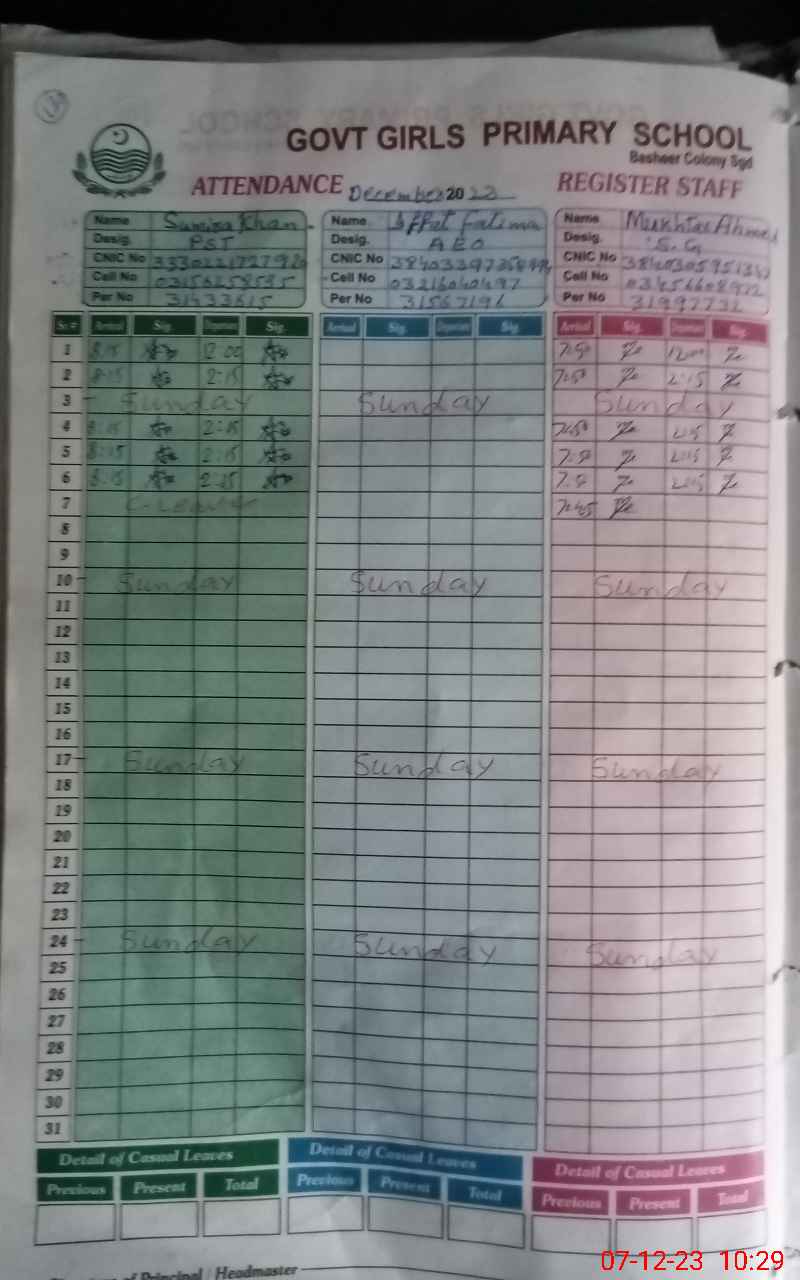 GOVT GIRLS PRIMARY SCHOOL
Basheer Colony Sgd
ATTENDANCE December 2023 REGISTER STAFF
Name Khan Name Iffat Fatima Name Mukhtar Ahmed
Desig. PST Desig. AEO Desig. S.G
CNIC No CNIC No CNIC No
Cell No Cell No 03216040497 Cell No
Per No 31433615 Per No 31567196 Per No 31997732
Sr.# Arrival Sig. Departure Sig. Arrival Sig. Departure Sig. Arrival Sig. Departure Sig.
1 8:15 12:00 7:50 12:00
2 8:15 2:15 7:50 2:15
3 Sunday Sunday Sunday
4 8:15 2:15 7:50 2:15
5 8:15 2:15 7:50 2:15
6 8:15 2:15 7:50 2:15
7 C-Leave 7:45
8
9
10 Sunday Sunday Sunday
11
12
13
14
15
16
17 Sunday Sunday Sunday
18
19
20
21
22
23
24 Sunday Sunday Sunday
25
26
27
28
29
30
31
Detail of Casual Leaves Detail of Casual Leaves Detail of Casual Leaves
Previous Present Total Previous Present Total Previous Present Total
of Principal / Headmaster
07-12-23 10:29